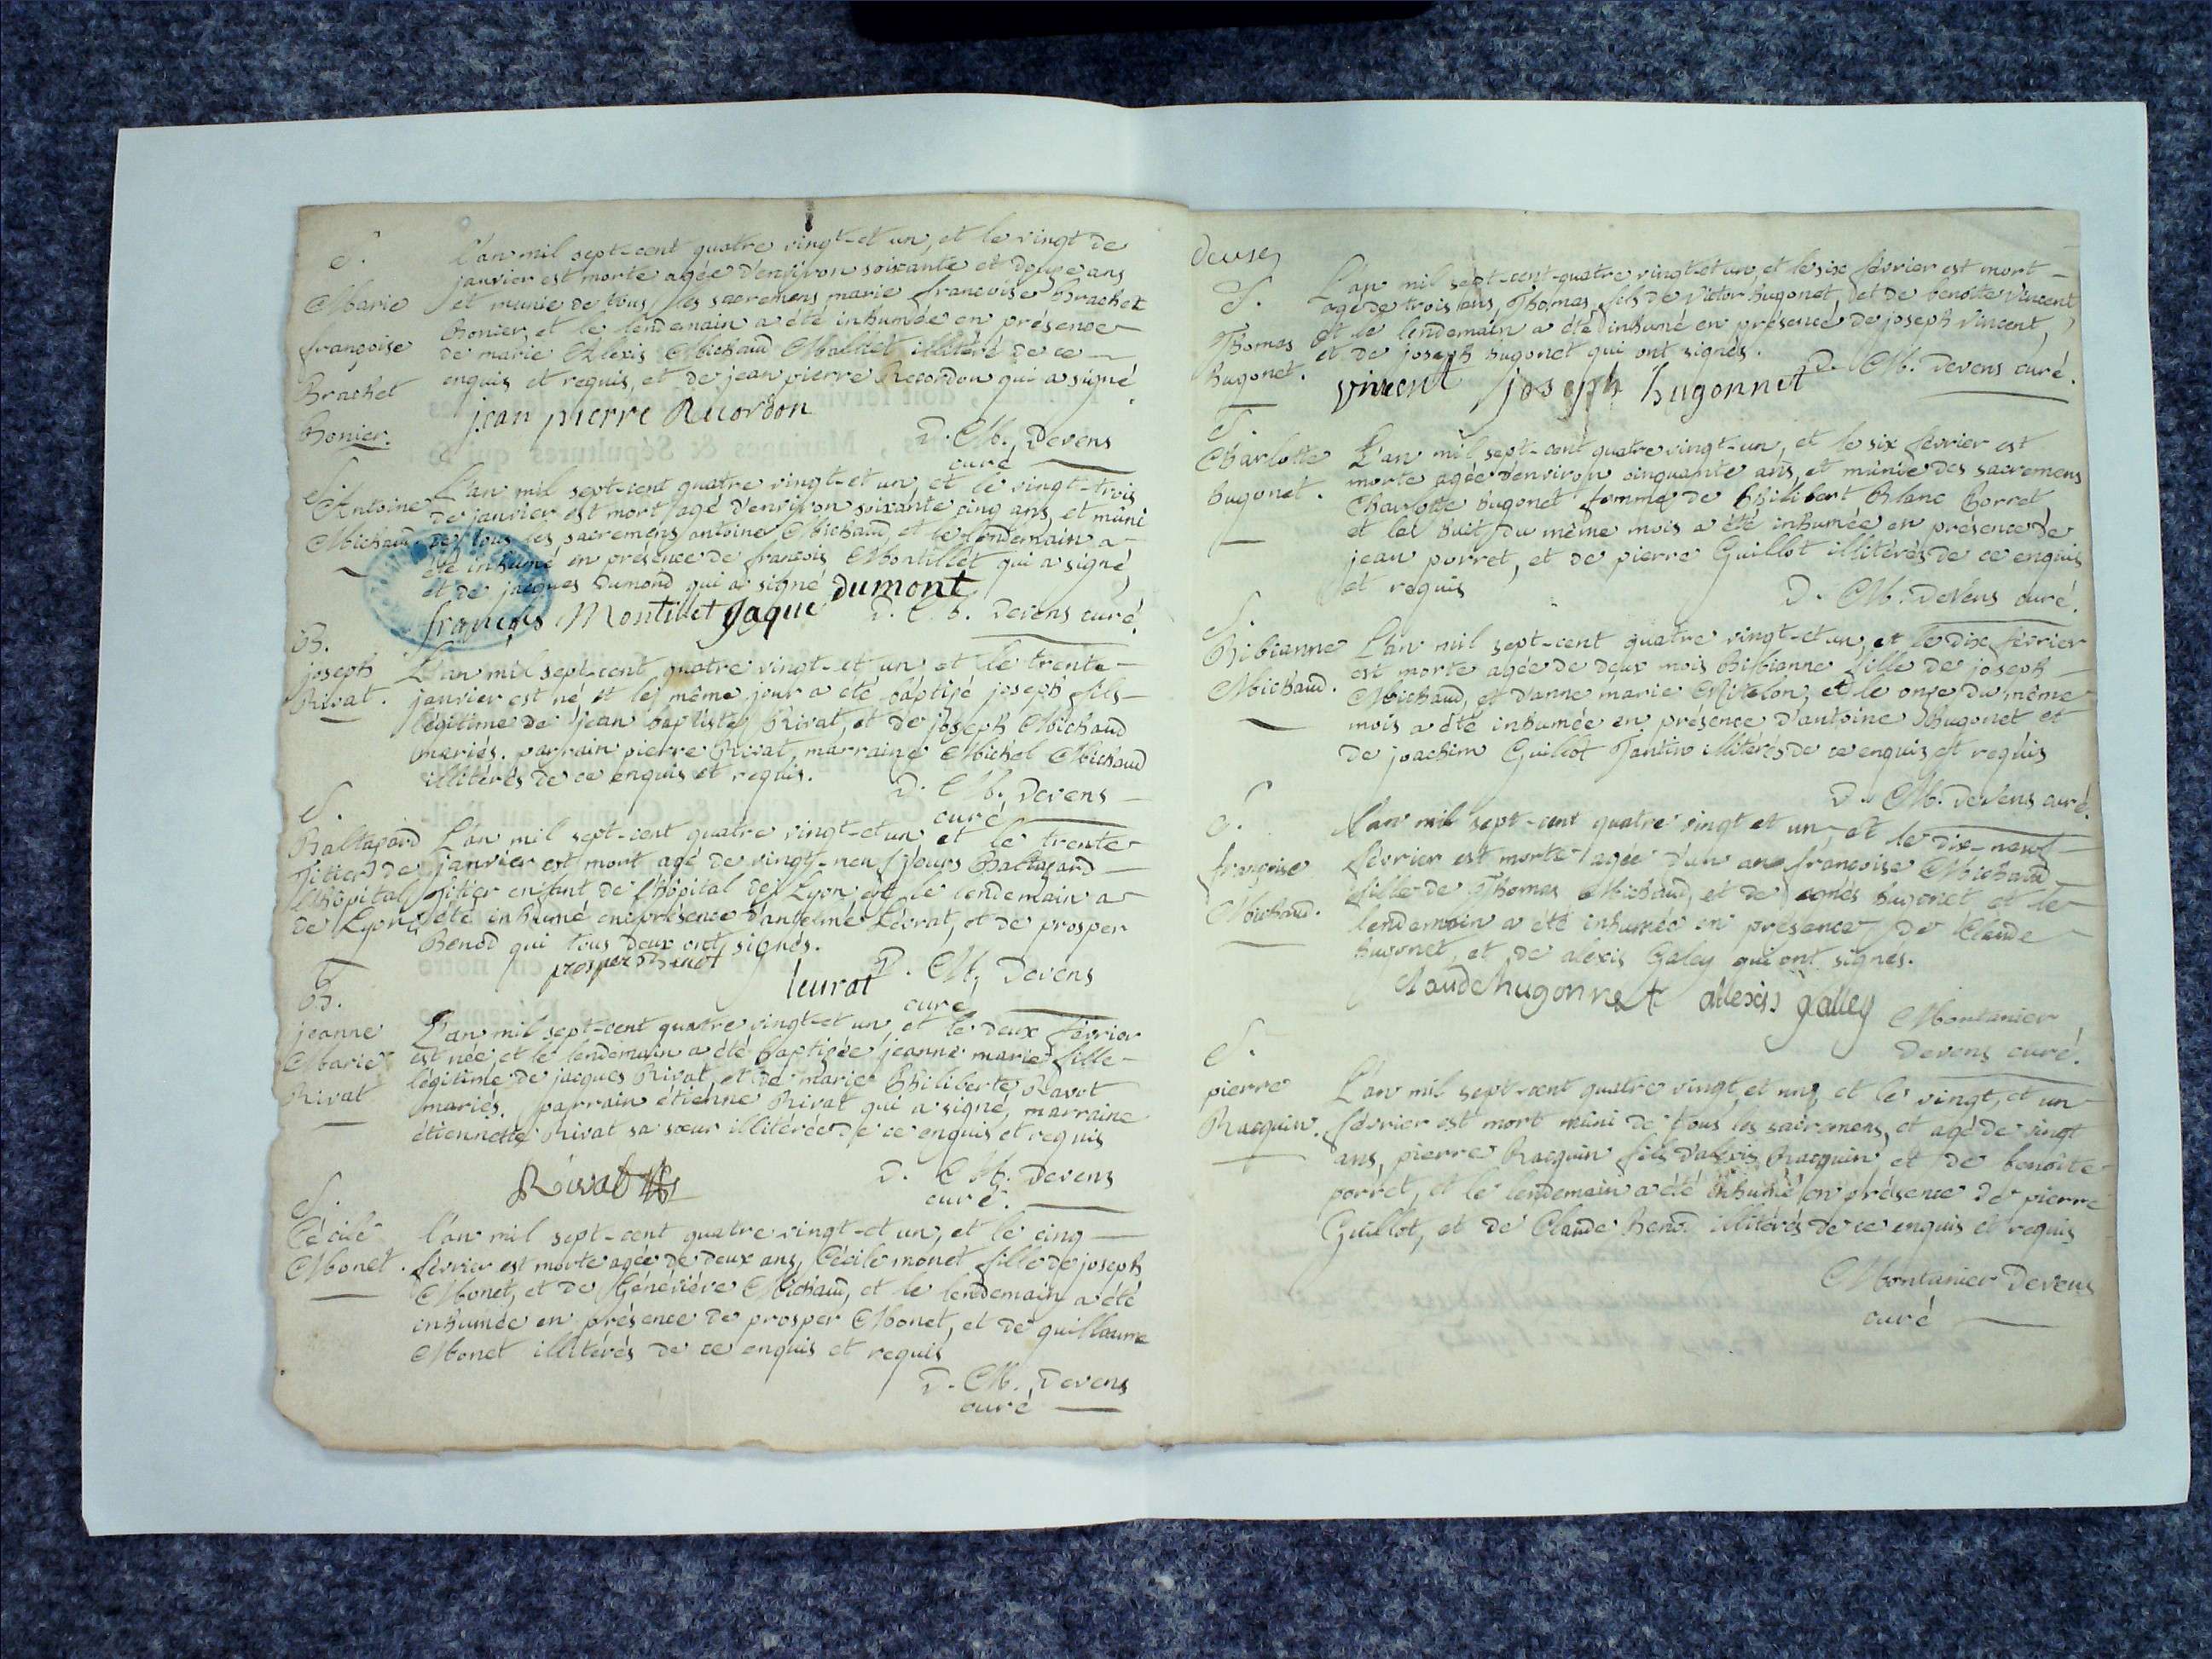 S.
Marie
françoise
Brachet
Bonier.
L'an mil sept-cent quatre vingt-et un, et le vingt de
janvier est morte agée d'environ soixante et douze ans
et munie de tous les sacremens marie francoise Brachet
Bonier, et le lendemain a été inhumée en présence
de marie Alexis Michaud Mallet illitéré de ce
enquis et requis, et de jean pierre Recordon qui a signé.
jean pierre Ricordon
D. M. Devens
curé
S.
Antoine
Michaud
L'an mil sept-cent quatre vingt-et un, et le vingt-trois
de janvier est mort agé d'environ soixante cinq ans, et muni
de tous les sacremens antoine Michaud, et le lendemain a
été inhumé en présence de francois Montillet qui a signé,
et de jacques Dumond qui a signé dumont
françois Montillet Jaque D. M. Devens curé.
B.
joseph
Rivat.
L'an mil sept-cent quatre vingt-et un, et le trente
janvier est né et le même jour a été baptisé joseph fils
légitime de jean baptiste Rivat, et de joseph Michaud
mariés. parrain pierre Rivat, marraine Michel Michaud
illitérés de ce enquis et requis.
D. M. Devens
curé
S.
Baltazard
Titier de
l'hôpital
de Lyon.
L'an mil sept-cent quatre vingt-et un et le trente
janvier est mort agé de vingt-neuf jours Baltazard
Titier enfant de l'hôpital de Lyon, et le lendemain a
été inhumé en présence d'antelme Levrat, et de prosper
Benod qui tous deux ont signés.
prosper Benot
leurat
D. M. Devens
curé
B.
jeanne
Marie
Rivat
L'an mil sept-cent quatre vingt-et un, et le deux février
est née et le lendemain a été baptisée jeanne marie fille
légitime de jacques Rivat, et de marie Philiberte Ravot
mariés. parrain etienne Rivat qui a signé, marraine
étiennette Rivat sa sœur illitérée de ce enquis et requis
Rivat
D. M. Devens
curé.
S.
Cécile
Monet.
l'an mil sept-cent quatre vingt-et un, et le cinq
février est morte agée de deux ans, Cécile monet fille de joseph
Monet, et de Généviéve Michaud, et le lendemain a été
inhumée en présence de prosper Monet, et de guillaume
Monet illitérés de ce enquis et requis
D. M. Devens
curé
deuse
S.
Thomas
hugonet.
L'an mil sept-cent-quatre vingt-et un, et le six février est mort
agé de trois ans, Thomas fils de Victor hugonet, et de benoîte Vincent,
et le lendemain a été inhumé en présence de joseph Vincent,
et de joseph hugonet qui ont signés.
D. M. Devens curé.
vincent joseph hugonnet
S.
Charlotte
hugonet.
L'an mil sept-cent quatre vingt-un, et le six février est
morte agée d'environ cinquante ans, et munie des sacremens
Charlotte hugonet femme de Philibert Blanc Porret
et le huit du même mois a été inhumée en présence de
jean porret, et de pierre Guillot illitérés de ce enquis
et requis
D. M. Devens curé.
S.
Bibianne
Michaud.
L'an mil sept-cent quatre vingt-et un, et le dix février
est morte agée de deux mois Bibianne fille de joseph
Michaud, et d'anne marie Mitelon, et le onze du même
mois a été inhumée en présence d'antoine hugonet et
de joachim Guillot Tantin illitérés de ce enquis et requis
D. M. Devens curé.
S.
françoise
Michaud.
L'an mil sept-cent quatre vingt et un et le dix-neuf
février est morte agée d'un an françoise Michaud
fille de Thomas Michaud, et de agnés hugonet, et le
lendemain a été inhumée en présence de Claude
hugonet, et de alexis Galey qui ont signés.
Claude hugonnet allexis galley
Montanier
Devens curé.
S.
pierre
Racquin.
L'an mil sept-cent quatre vingt et un, et le vingt, et un
février est mort muni de tous les sacremens, et agé de vingt
ans, pierre Racquin fils d'alexis Racquin, et de benoîte
porret, et le lendemain a été inhumé en présence de pierre
Guillot, et de Claude Benod illitérés de ce enquis et requis
Montanier Devens
curé